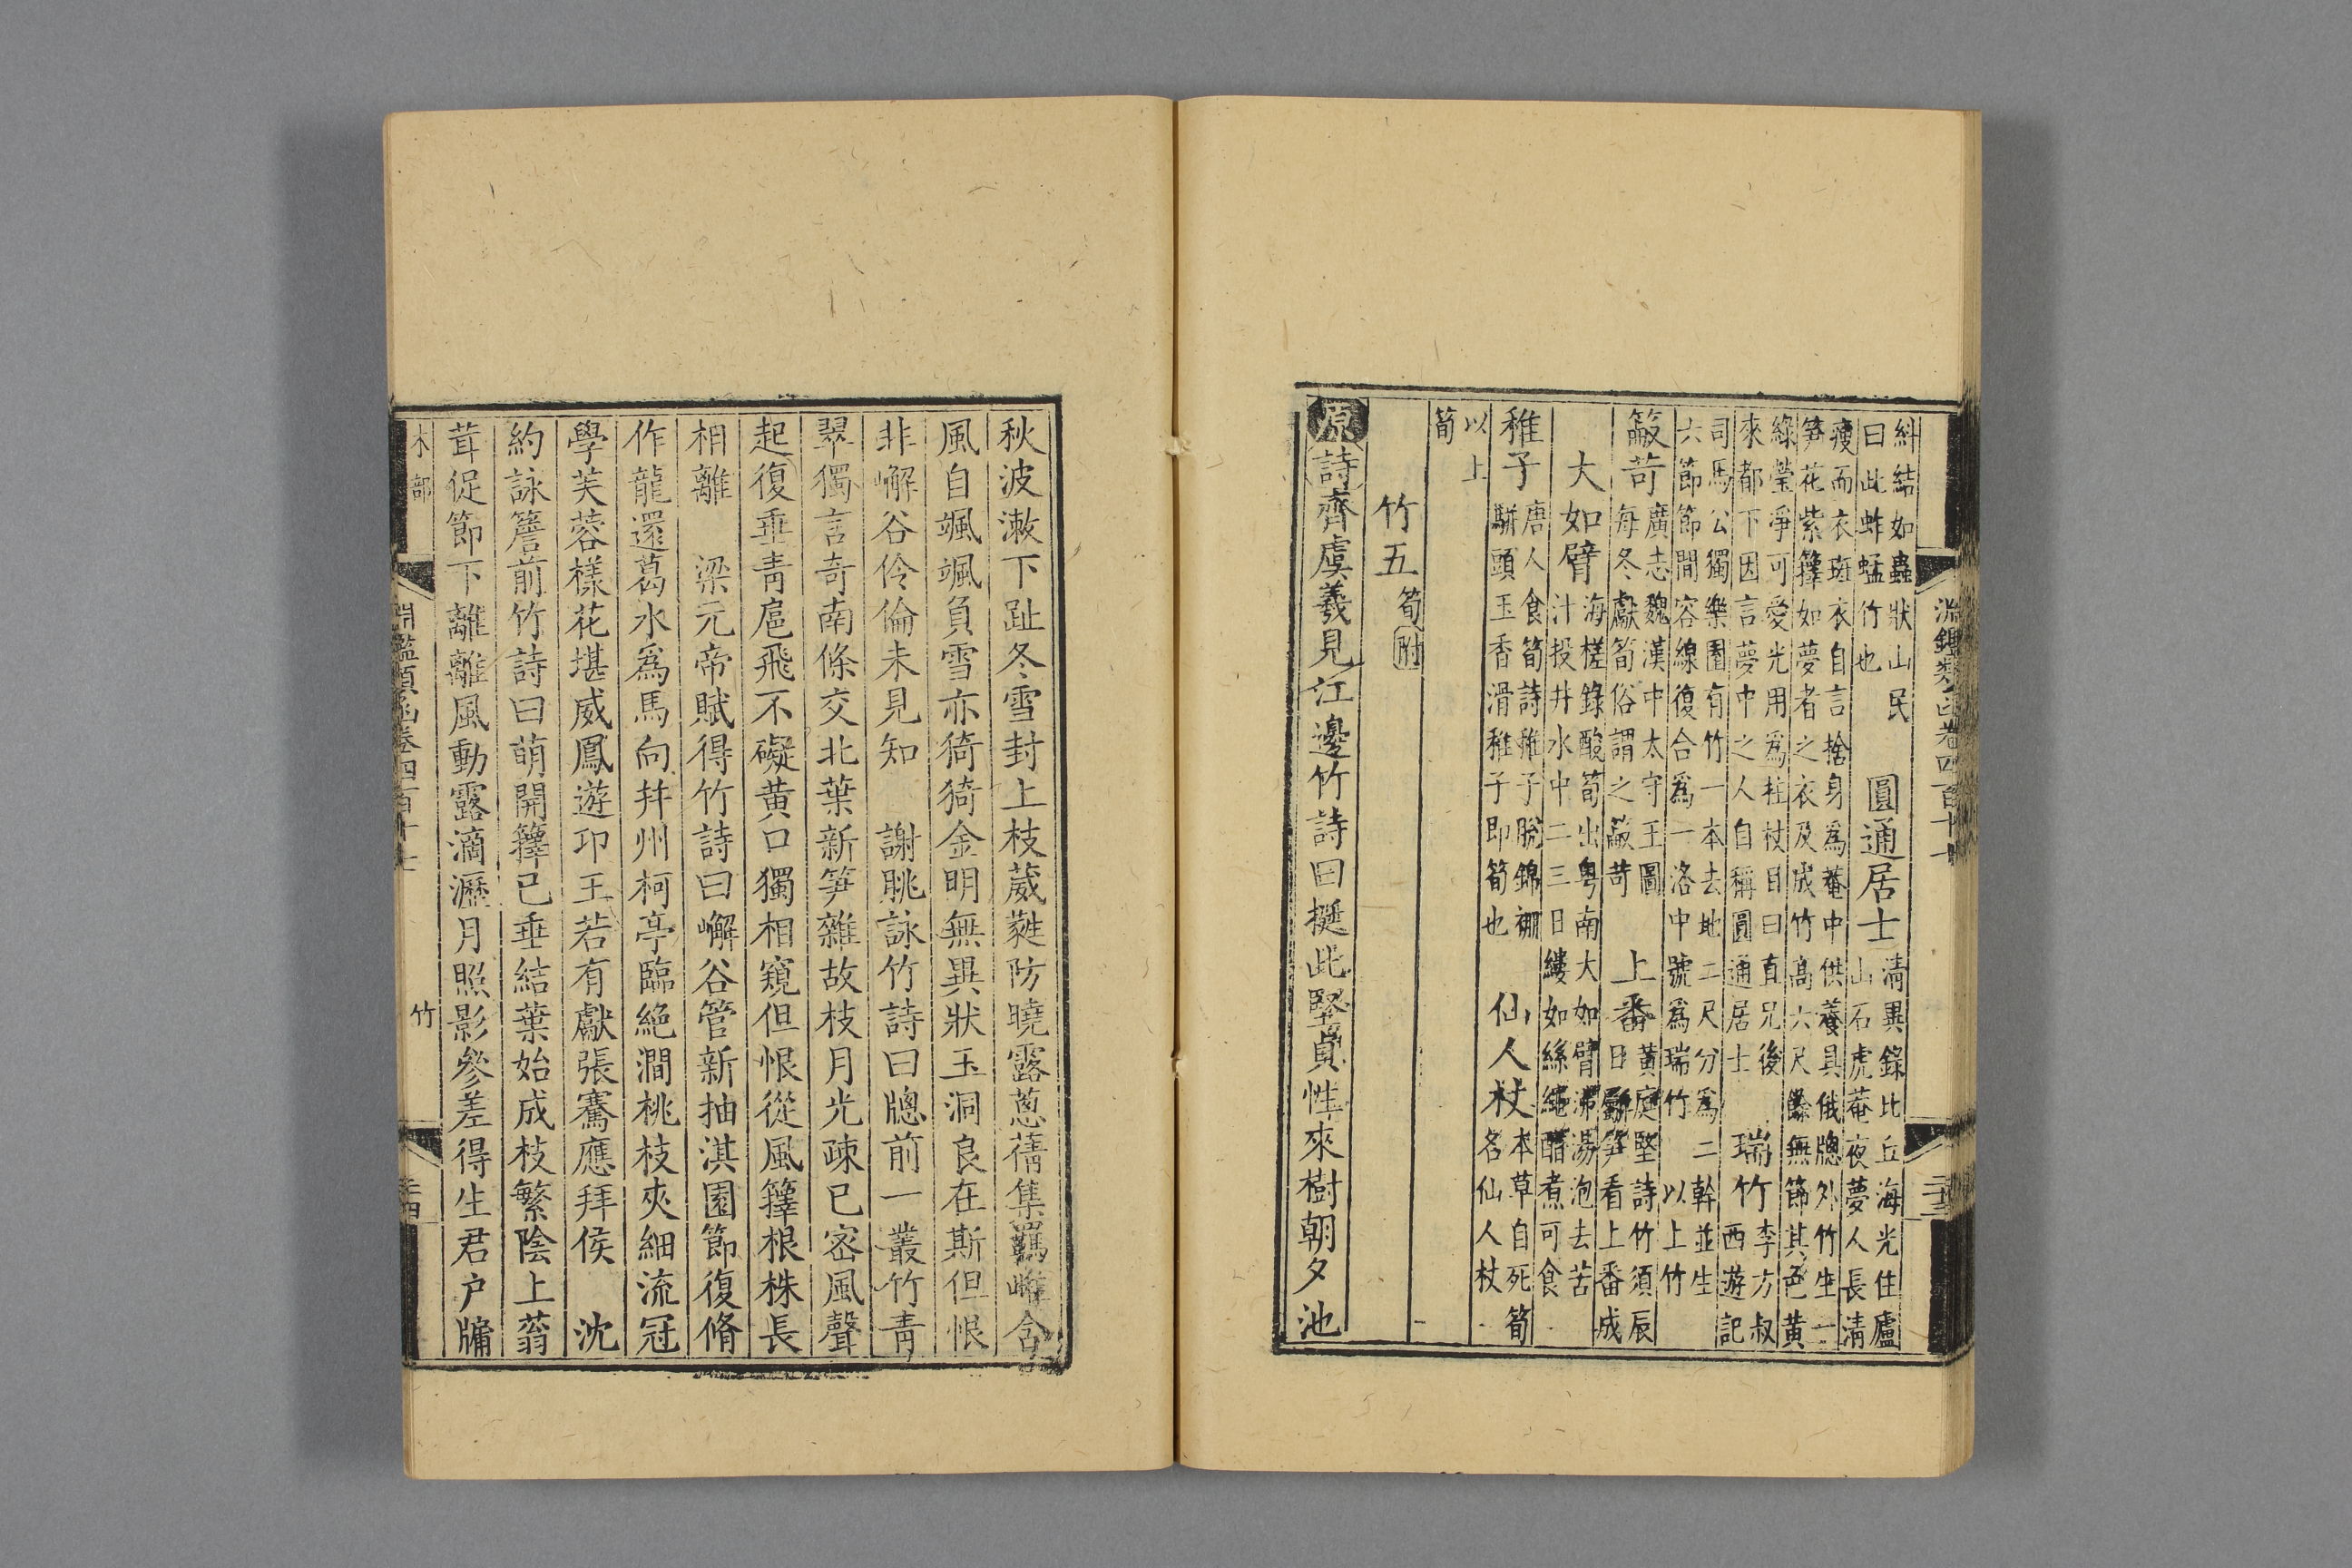 糾結如蟲狀山民
曰此蚱蜢竹也
圓通居士
清異錄比丘海光住廬
山石虎菴夜夢人長清
瘦而衣斑衣自言捨身爲菴中供養具俄牕外竹生一
笋花紫籜如夢者之衣及成竹高六尺餘無節其色黃
綠瑩淨可愛光用爲拄杖目曰直兄後
來都下因言夢中之人自稱圓通居士
瑞竹
李方叔
西遊記
司馬公獨樂園有竹一本去地二尺分爲二幹並生
六節節間容線復合爲一洛中號爲瑞竹
以上竹
䉤苛
廣志魏漢中太守王圖
每冬獻筍俗謂之䉤苛
上番
黃庭堅詩竹須辰
日斸笋看上番成
大如臂
海槎錄酸筍出粤南大如臂沸湯泡去苦
汁投井水中二三日縷如絲繩醋煮可食
稚子
唐人食筍詩稚子脫錦棚
駢頭玉香滑稚子即筍也
仙人杖
本草自死筍
名仙人杖
以上
筍
竹五筍附
原詩齊虞羲見江邊竹詩曰挺此堅貞性來樹朝夕池
淵鑑類函卷四百十七
秋波漱下趾冬雪封上枝葳蕤防曉露蔥蒨集羈雌含
風自颯颯負雪亦猗猗金明無異狀玉洞良在斯但恨
非嶰谷伶倫未見知 謝朓詠竹詩曰牕前一叢竹青
翠獨言奇南條交北葉新笋雜故枝月光疎已密風聲
起復垂青扈飛不礙黃口獨相窺但恨從風籜根株長
相離 梁元帝賦得竹詩曰嶰谷管新抽淇園節復脩
作龍還葛水爲馬向并州柯亭臨絕澗桃枝夾細流冠
學芙蓉樣花堪威鳳遊卭王若有獻張騫應拜侯 沈
約詠簷前竹詩曰萌開籜已垂結葉始成枝繁陰上蓊
茸促節下離離風動露滴瀝月照影參差得生君户牖
木部
淵鑑類函卷四百十七
竹